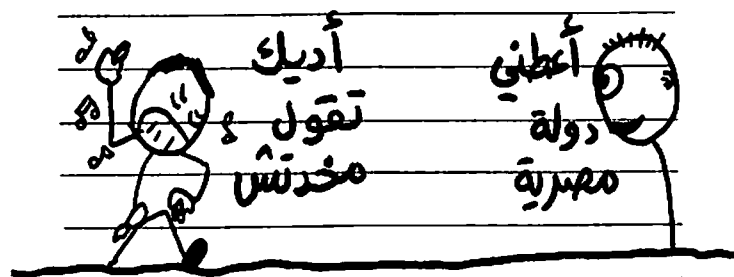 أعطني
دولة
مصرية
أديك
تقول
مخدتش
؟